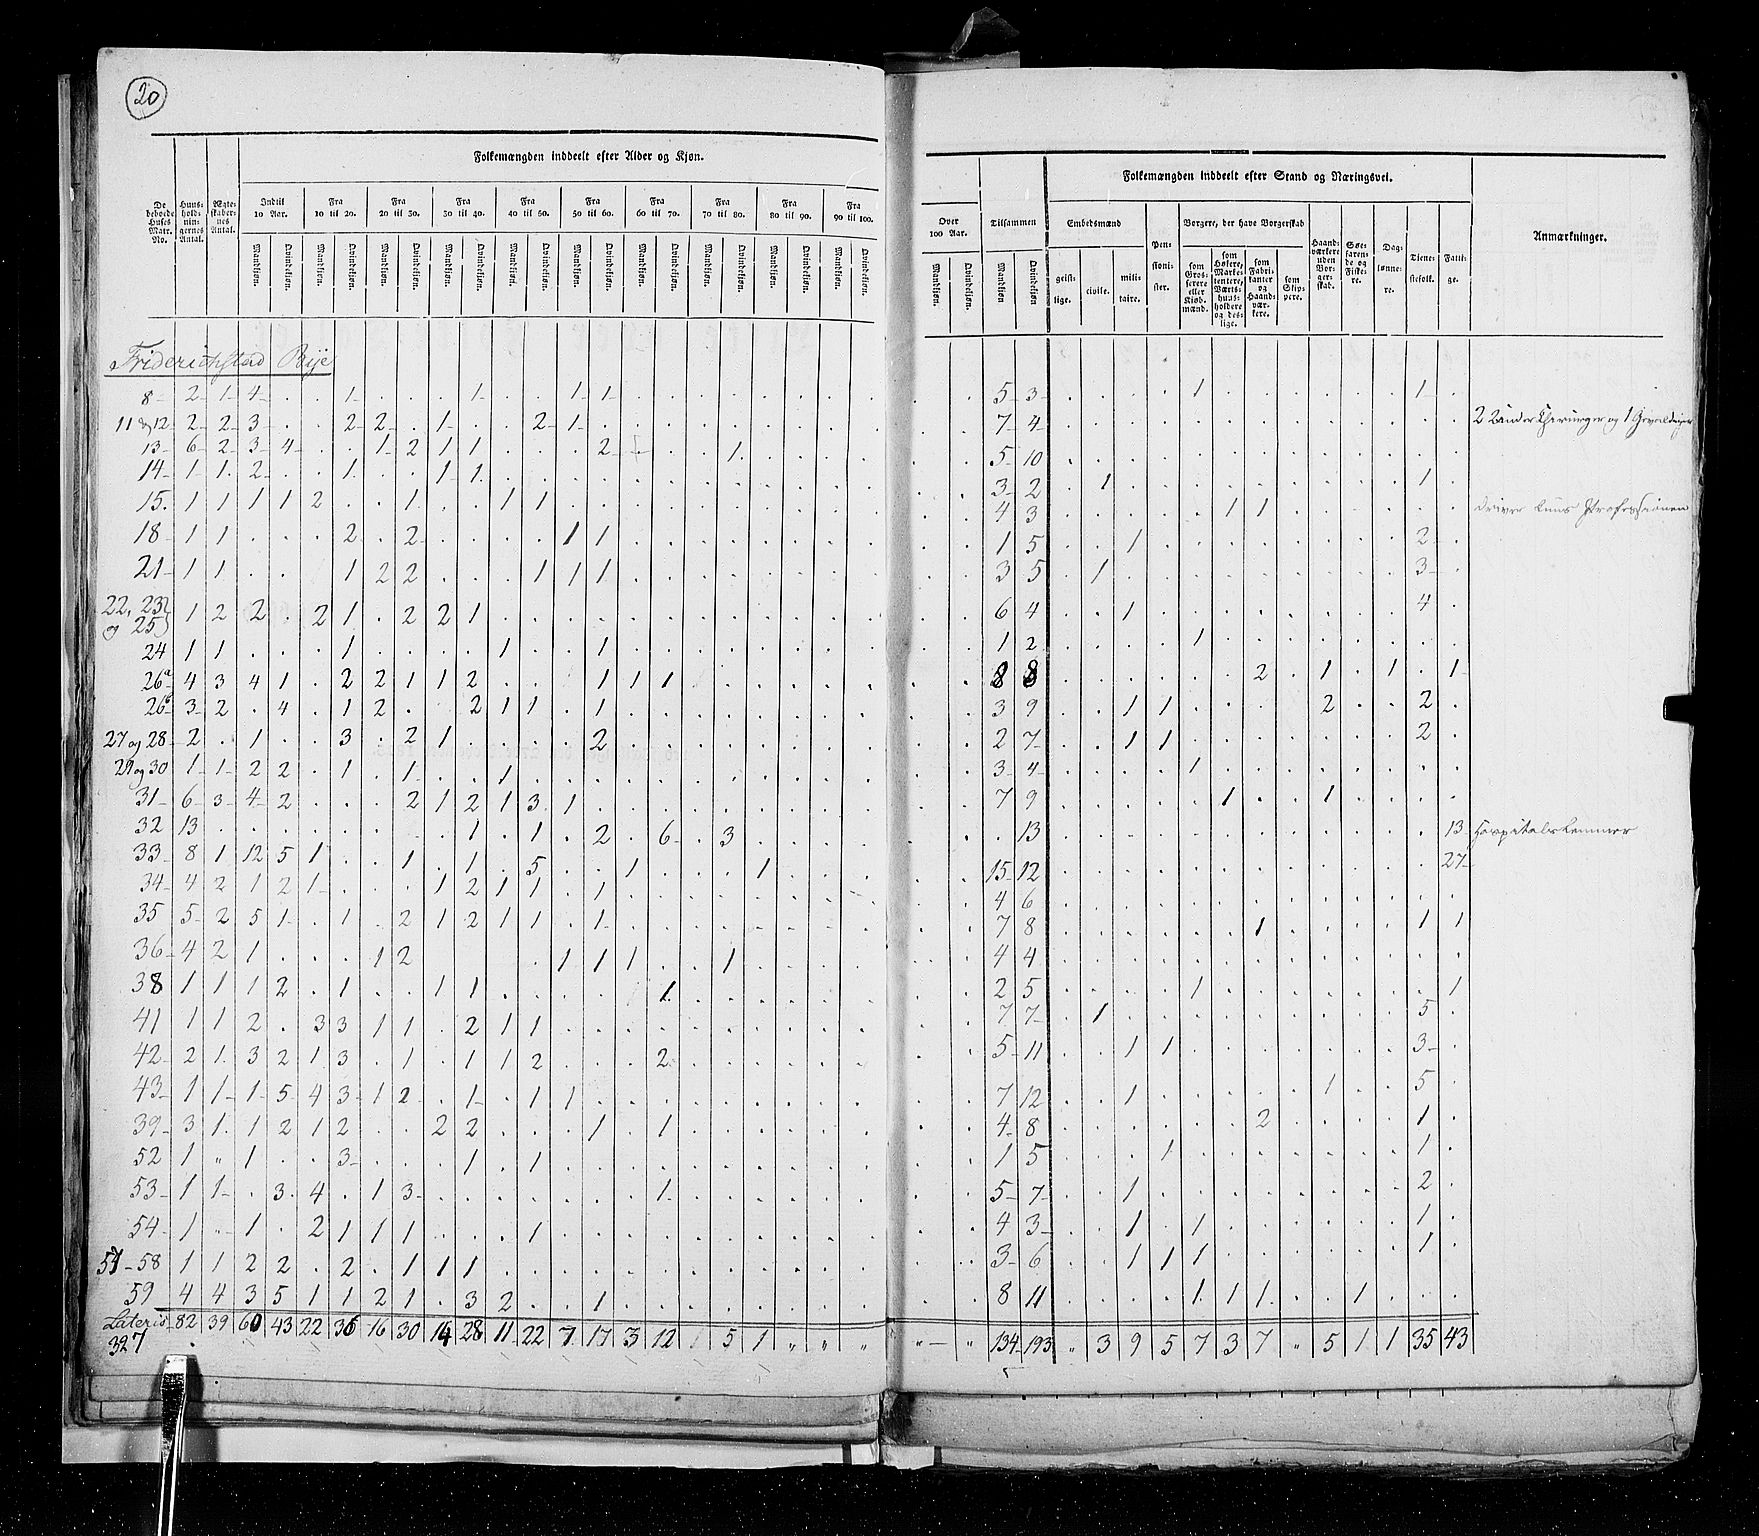 20
Folkemængden inddeelt efter Alder og Kjøn.
De beboede Huses Matr. No.
Huusholdningernes Antal.
Ægteskabernes Antal.
Indtil 10 Aar.
Fra 10 til 20.
Fra 20 til 30.
Fra 30 til 40.
Fra 40 til 50.
Fra 50 til 60.
Fra 60 til 70.
Fra 70 til 80.
Fra 80 til 90.
Fra 90 til 100.
Mandkjøn. Qvindekjøn.
Over 100 Aar.
Tilsammen
Mandkjøn Qvindekjøn
Folkemængden inddeelt efter Stand og Næringsvei.
Embedsmænd
geistlige. civile. militaire.
Pensionister.
Borgere, der have Borgerskab
som Grosserere eller Kiøbmænd.
som Høkere, Marketentere, Værtshuusholdere og deslige.
som Fabrikanter og Haandværkere.
som Skippere.
Haandværkere uden Borgerskab.
Søefarende og Fiskere.
Daglønnere.
Tienestefolk.
Fattige.
Anmærkninger.
Friderichstad Bye
8 2 1 4 . . 1 . . . 1 . . 1 1 5 3 . . . . 1 . . . . . . 1 .
11 og 12 2 2 3 . . 2 2 . 1 . . 2 1 7 4 2 Under Chirurger og 1 Gevaldiger
13 6 2 3 4 . . 1 2 1 1 . . . 2 . . . 1 5 10
14 1 1 2 . . 1 . . 1 1 3 2 . 1 . . . . . . . . . 1 .
15 1 1 1 1 2 . . 1 . . 1 1 4 3 . . . . . 1 1 driver Professionen
18 1 1 . . . 2 . 2 . . . . 1 1 1 5 . . 1 . . . . . . . . 2 .
21 1 1 . . 1 2 2 . . . 1 1 1 3 5 . 1 . . . . . . . . . 3 .
22, 23 og 25 1 2 2 . 2 1 . 2 2 1 6 4 . . 1 . . . . . . . . 4 .
24 1 1 . . . 1 . . . . 1 . . 1 1 2 . . . . 1
26a 4 3 4 1 . 2 2 1 1 2 . . . 1 1 1 8 8 . . . . . . 2 . 1 . 1 . 1
26b 3 2 . 4 . 1 2 . . 2 1 1 . 1 3 9 . . 1 1 . . . . 2 . . 2 .
27 og 28 2 . 1 . . 3 . 2 1 . . . . 2 2 7 . . 1 1 . . . . . . . 2 .
29 og 30 1 1 2 2 . 1 . 1 . . 1 3 4 . . . . 1
31 6 3 4 2 . . . 2 1 2 1 3 1 7 9 . . . . . 1 . . 1
32 13 . . . . . . . . 1 . 1 . 2 . 6 . 3 . 13 13 Hospitalslemmer
33 8 1 12 5 1 . . 1 . 1 . 5 . . 1 . . . 1 15 12 27
34 4 2 1 2 1 . . . 1 2 1 1 . 1 4 6
35 5 2 5 1 . 1 . 2 1 2 1 1 . 1 7 8 . . . . . . 1 . . . . 1 1
36 4 2 1 . . . 1 2 . . . . 1 1 1 . . 1 4 4
38 1 1 1 2 . 1 . . 1 1 . . . . . 1 2 5 . . . . 1 . . . . . . . 1
41 1 1 2 . 3 3 1 1 . 2 1 1 7 7 . 1 . . . . . . . . . 5 .
42 2 1 3 2 1 3 . 1 . 1 1 2 . . . 2 5 11 . . 1 1 . . . . . . . 3 .
43 1 1 1 5 4 3 1 2 . 1 . 1 1 7 12 . . 1 . . . . . 1 . . 5 .
39 3 1 1 2 1 2 . . 2 2 . . . 1 . 1 4 8 . . . . . . 2 . . . . 1 .
52 1 " 1 . . 3 . . . 1 . 1 1 5 . . . 1 . . . . . . . 1 .
53 1 1 . 3 4 . 1 3 . . . . . . . 1 5 7 . . 1 . . . . . . . . 2 .
54 1 . 1 . 2 1 1 1 . . . 1 4 3 . . 1 . 1 . . . . . . 1 .
57-58 1 1 2 2 . 2 . 1 1 1 3 6 . . 1 1 1 . . . . . . 1 .
59 4 4 3 5 1 1 2 1 . 3 2 . . 1 8 11 . . . . 1 1 1 . . 1 . . .
Lateris 82 39 60 43 22 36 16 30 14 28 11 22 7 17 3 12 1 5 1 " " " " " 134 193 " 3 9 5 7 3 7 " 5 1 1 35 43
327